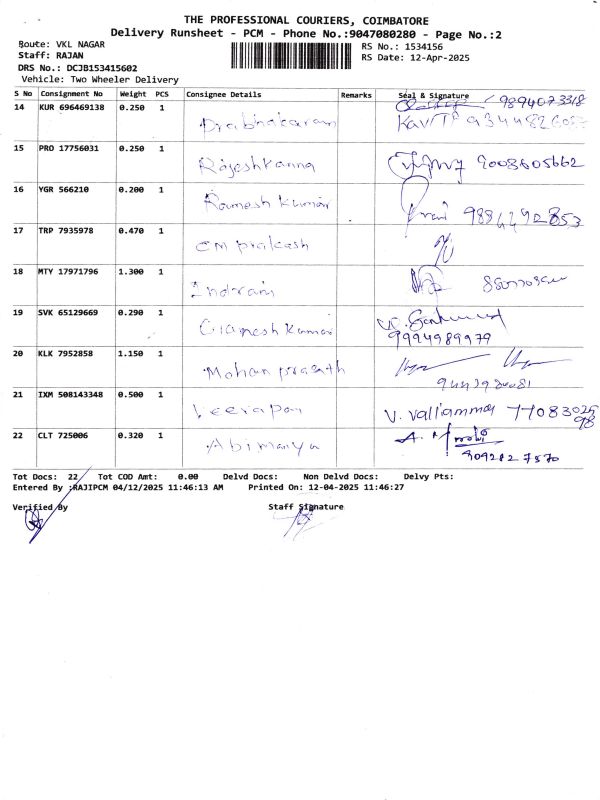 THE PROFESSIONAL COURIERS, COIMBATORE
Delivery Runsheet - PCM - Phone No.:9047080280 - Page No.:2
Route: VKL NAGAR
Staff: RAJAN
DRS No.: DCJB153415602
Vehicle: Two Wheeler Delivery
RS No.: 1534156
RS Date: 12-Apr-2025
S No Consignment No Weight PCS Consignee Details Remarks Seal & Signature
14 KUR 696469138 0.250 1 Prabhakaram 9894073318
15 PRO 17756031 0.250 1 Rajeshkanna 9003605662
16 YGR 566210 0.200 1 Ramesh Kumar
17 TRP 7935978 0.470 1 om prakash
18 MTY 17971796 1.300 1 Indrani
19 SVK 65129669 0.290 1 Gianesh Kumar 9994989979
20 KLK 7952858 1.150 1 Mohan prasath
21 IXM 508143348 0.500 1 Veerapan V. Valliammay
22 CLT 725006 0.320 1 Abinaya
Tot Docs: 22 Tot COD Amt: 0.00 Delvd Docs: Non Delvd Docs: Delvy Pts:
Entered By :RAJIPCM 04/12/2025 11:46:13 AM Printed On: 12-04-2025 11:46:27
Verified By Staff Signature